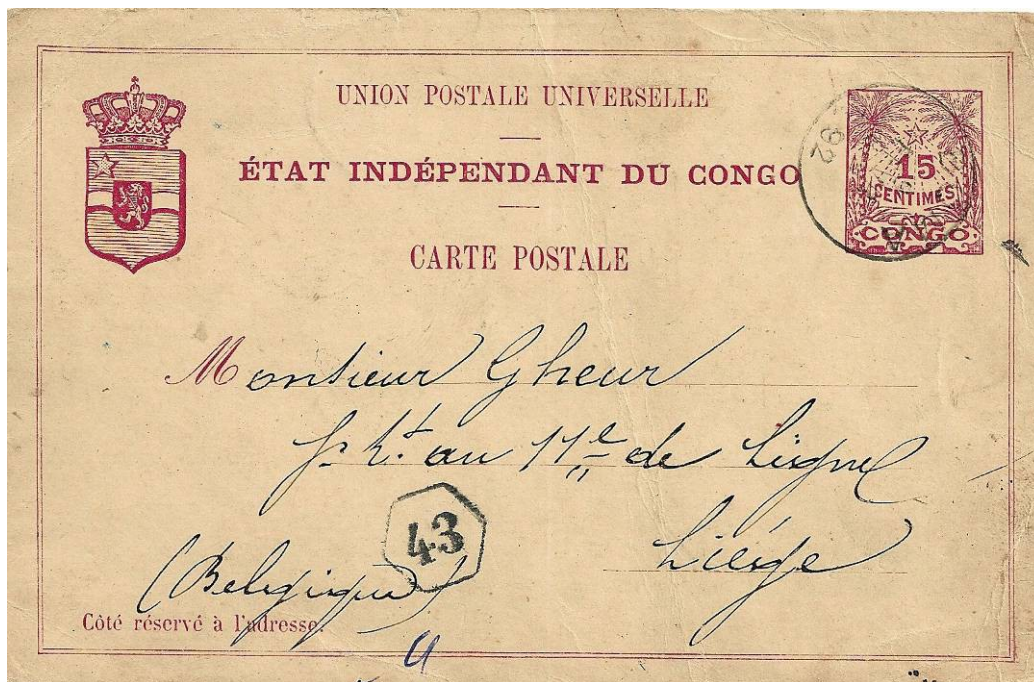 UNION POSTALE UNIVERSELLE
ÉTAT INDÉPENDANT DU CONGO
CARTE POSTALE
15
CENTIMES
CONGO
92
Monsieur Gheur
au 11e de Ligne
43
Liége
(Belgique)
Côté réservé à l'adresse.